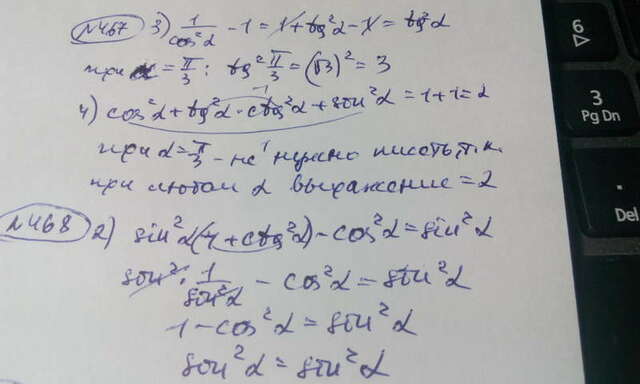 №467 3) 1/cos²α - 1 = 1 + tg²α - 1 = tg²α
при α = π/3 : tg² π/3 = (√3)² = 3
4) cos²α + tg²α · ctg²α + sin²α = 1 + 1 = 2
1
при α = π/3 - не нужно писать, т.к.
при любом α выражение = 2
№468 2) sin²α(1 + ctg²α) - cos²α = sin²α
sin² · 1/sin²α - cos²α = sin²α
1 - cos²α = sin²α
sin²α = sin²α
6
3
Pg Dn
.
Del